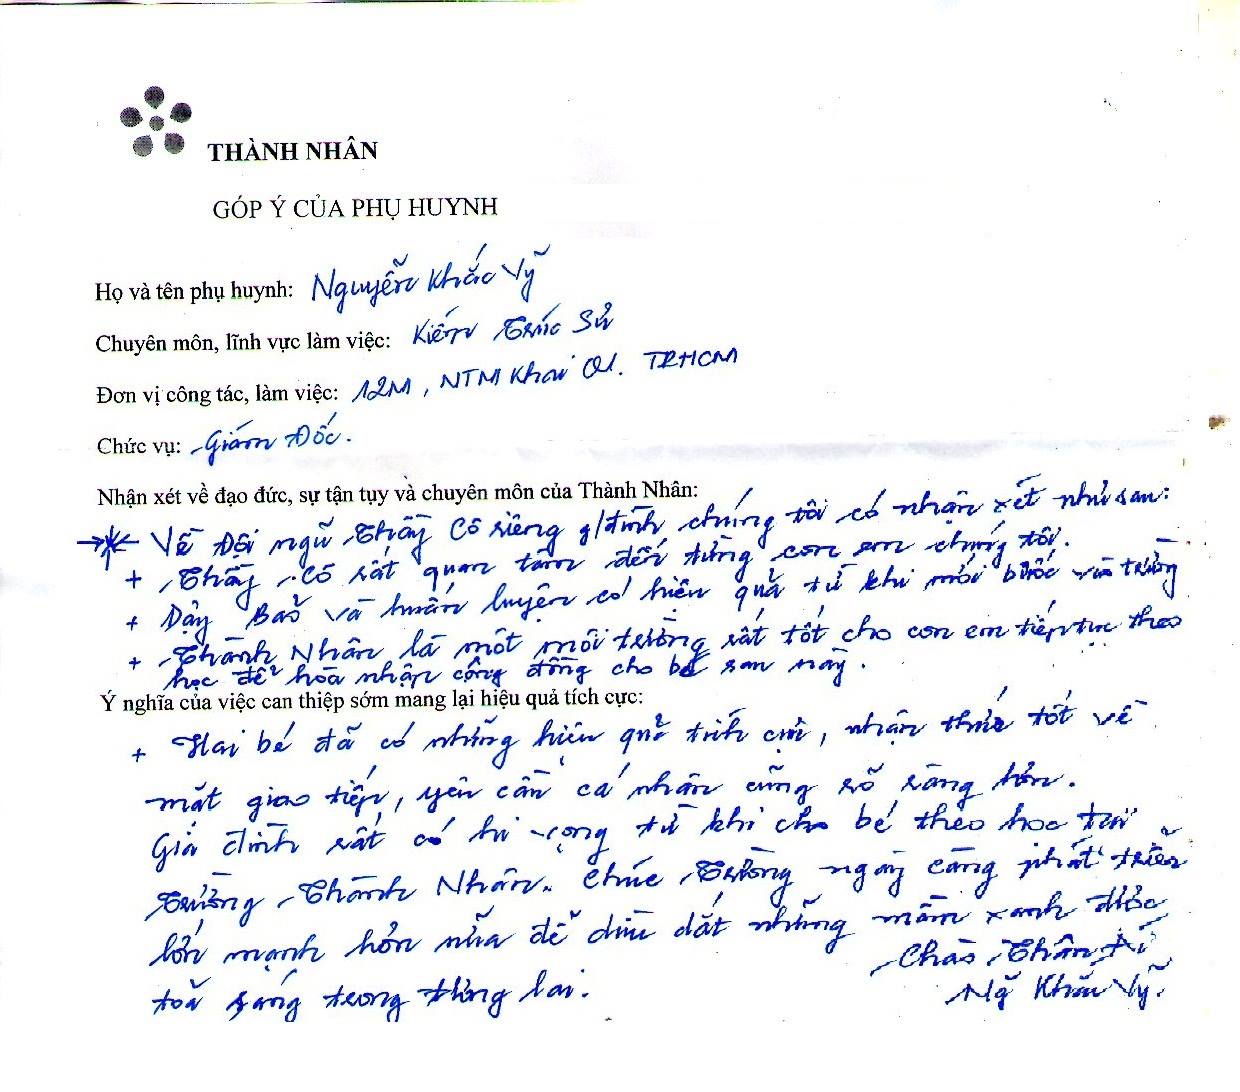 THÀNH NHÂN
GÓP Ý CỦA PHỤ HUYNH
Họ và tên phụ huynh: Nguyễn Khắc Vỹ
Chuyên môn, lĩnh vực làm việc: Kiến Trúc Sư
Đơn vị công tác, làm việc: 12M, NTM Khai Q1. TPHCM
Chức vụ: Giám Đốc.
Nhận xét về đạo đức, sự tận tụy và chuyên môn của Thành Nhân:
Về Đội ngũ Thầy Cô riêng g/đình chúng tôi có nhận xét như sau:
+ Thầy, Cô rất quan tâm đến từng con em chúng tôi.
+ Dạy Bảo và huấn luyện có hiệu quả từ khi mới bước vào trường
+ Thành Nhân là một môi trường rất tốt cho con em tiếp tục theo
học để hòa nhập cộng đồng cho bé sau này.
Ý nghĩa của việc can thiệp sớm mang lại hiệu quả tích cực:
+ Hai bé đã có những hiệu quả tích cực, nhận thức tốt về
mặt giao tiếp, yêu cầu cá nhân cũng rõ ràng hơn.
Gia đình rất có hi vọng từ khi cho bé theo học tại
trường Thành Nhân. Chúc Trường ngày càng phát triển
lớn mạnh hơn nữa để dìu dắt những mầm xanh được
toả sáng trong tương lai.
Chào Thân Ái
Ng Khắc Vỹ.